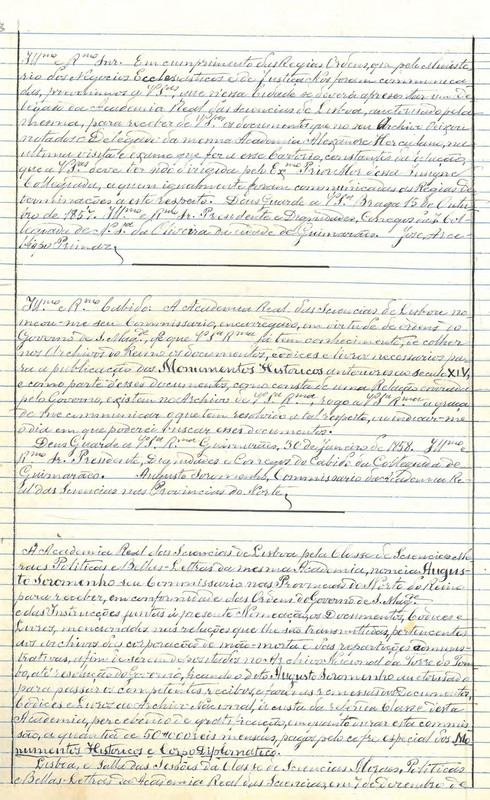 Ill.mo e R.mo Snr. Em cumprimento das Regias Ordens, que pelo Ministe
rio dos Negocios Ecclesiasticos e de Justiça Nos foram communica
das, prevenimos a V. S.as, que nessa Cidade se deverá apresentar um De
legado da Academia Real das Sciencias de Lisboa, auctorisado pela
mesma, para receber de V. S.as os documentos que no seu Archivo
notados o Delegado da mesma Academia Alexandre Herculano, na
ultima visita e exame que fez a esse Cartorio, constantes da relação,
que a V. S.as deve ter sido dirigida pelo Ex.mo Prior Mor dessa insigne
Collegiada, a quem igualmente foram communicadas as Regias De
terminações a este respeito. Deus Guarde a V. S.as Braga 15 de Outu
bro de 1857. Ill.mo e R.mo Sr. Presidente e Dignidades, Conegos da Col
legiada de N. S.ra da Oliveira da cidade de Guimarães. José, Arce
bispo Primaz
Ill.mo e R.mo Cabido. A Academia Real das Sciencias de Lisboa no
meou-me seu Commissario, encarregado, em virtude de ordens do
Governo de S. Mag.e, de que V. S.as R.mas já tem conhecimento, de colher
nos Archivos do Reino os documentos, codices e livros necessarios pa
ra a publicação dos Monumentos Historicos anteriores ao seculo XIV,
e como parte desses documentos, como consta de uma Relação enviada
pelo Governo, existam no Archivo de V. S.as R.mas, rogo a V. S.as R.mas a graça
de me communicar o que tem resolvido a tal respeito, e indicar-me
o dia em que poderei buscar esses documentos.
Deus Guarde a V. S.as R.mas Guimarães, 30 de Janeiro de 1858. Ill.mo e
R.mo Sr. Presidente, Dignidades e Conegos do Cabido da Collegiada de
Guimarães. Augusto Soromenho, Commissario da Academia Re
al das Sciencias nas Provincias do Norte
A Academia Real das Sciencias de Lisboa pela Classe de Sciencias Mo
raes Politicas e Bellas-Letras da mesma Academia, nomeia Augus
to Soromenho seu Commissario nas Provincias do Norte do Reino
para receber, em conformidade das Ordens do Governo de S. Mag.e
e das Instrucções juntas á presente Nomeação, os Documentos, Codices e
Livros, mencionados nas relações que lhe são transmittidas, pertencentes
aos archivos das corporações de mão-morta e das repartições adminis
trativas, afim de serem depositados no Archivo Nacional da Torre do Tom
bo, até resolução do Governo, ficando o dito Augusto Soromenho auctorisado
para passar os competentes recibos, e fazer as remessas dos Documentos,
Codices e Livros ao Archivo Nacional, á custa da referida Classe desta
Academia, percebendo de gratificação, em quanto durar esta commis
são, a quantia de 50$000 réis mensaes, pagos pelo cofre especial dos Mo
numentos Historicos e Corpo Diplomatico.
Lisboa, e Salla das Sessões da Classe de Sciencias Moraes, Politicas
e Bellas-Letras da Academia Real das Sciencias, em 7 de Novembro de